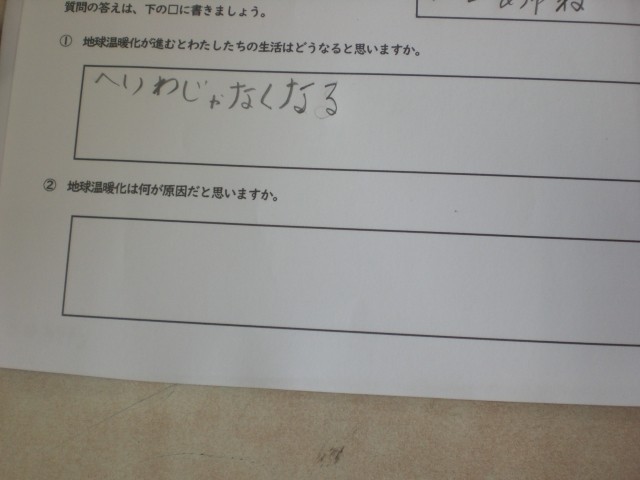 質問の答えは、下の□に書きましょう。
① 地球温暖化が進むとわたしたちの生活はどうなると思いますか。
へいわじゃなくなる
② 地球温暖化は何が原因だと思いますか。